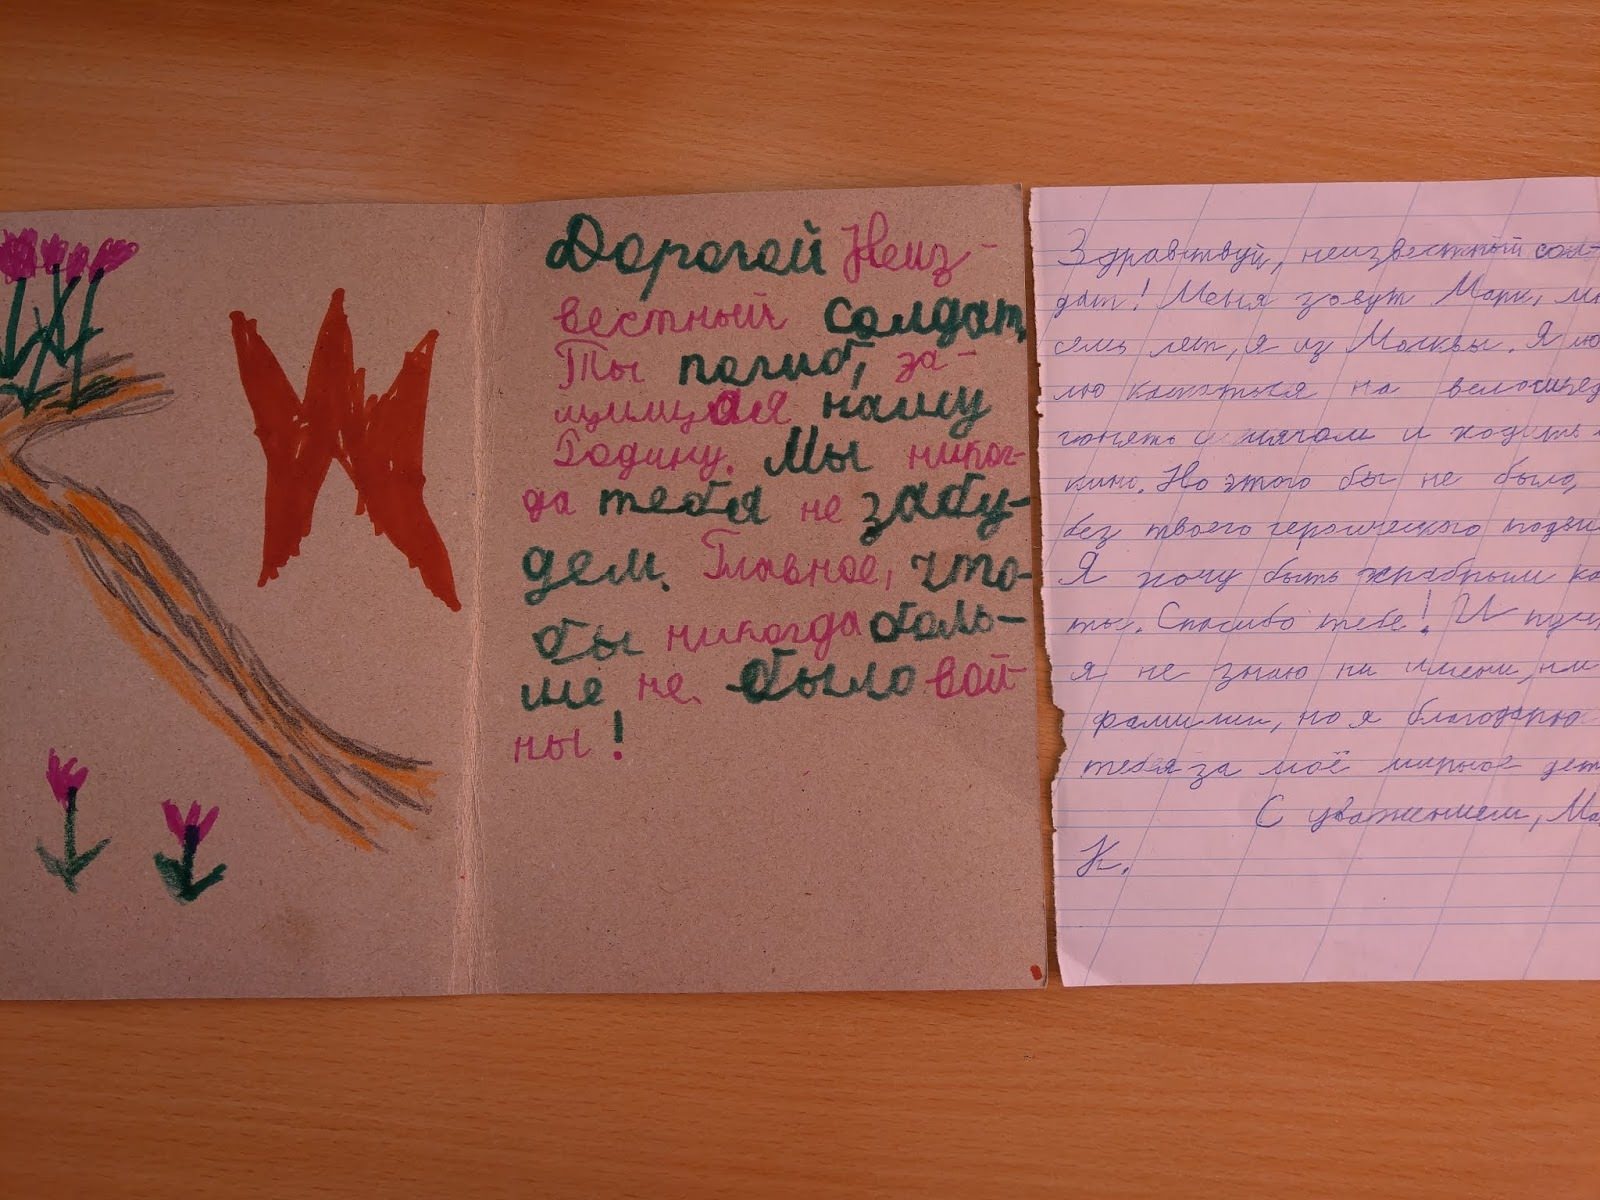 Дорогой Неиз-
вестный солдат,
Ты погиб, за-
щищая нашу
Родину. Мы никог-
да тебя не забу-
дем. Главное, что-
бы никогда боль-
ше не было вой-
ны!
Здравствуй, неизвестный сол-
дат! Меня зовут Марк, мн
семь лет, я из Москвы. Я лю
лю кататься на велосипед
гонять с мячом и ходить
кино. Но этого бы не было,
без твоего героического подви
Я хочу быть храбрым ка
ты. Спасибо тебе! И пуст
я не знаю ни имени, ни
фамилии, но я благодарю
тебя за моё мирное дет
С уважением, Ма
К.